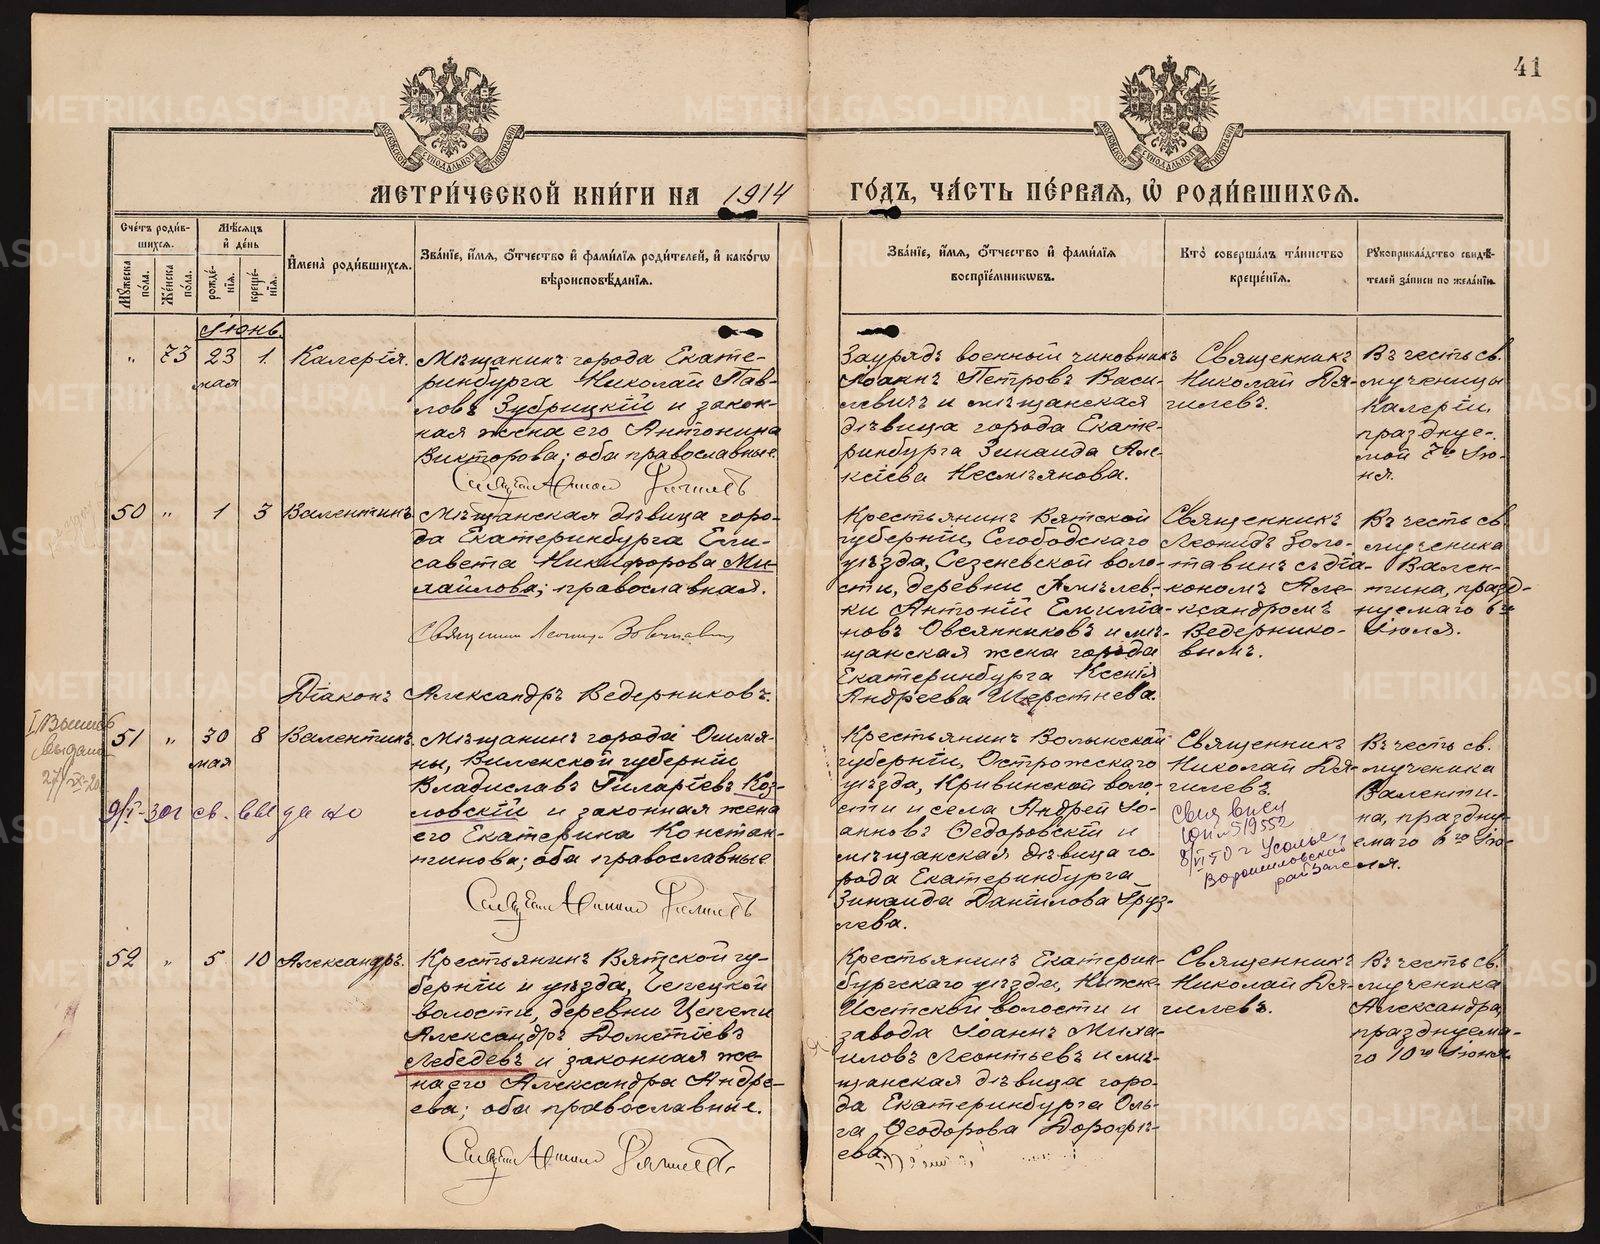 41
МЕТРИЧЕСКОЙ КНИГИ НА 1914
ГОДЪ, ЧАСТЬ ПЕРВАЯ, Ѿ РОДИВШИХСЯ.
Счетъ родив-
шихся.
Мѣсяцъ
и день
Мужеска пола.
Женска пола.
рожде-
нія.
креще-
нія.
Имена родившихся.
Званіе, имя, отчество и фамилія родителей, и какогѡ
вѣроисповѣданія.
Званіе, имя, отчество и фамилія
воспріемникѡвъ.
Кто совершалъ таинство
крещенія.
Рукоприкладство свидѣ-
телей записи по желанію.
Іюнь.
" 73 23 1. Калерія.
мая
Мѣщанинъ города Екате-
ринбурга Николай Пав-
ловъ Зубрицкій и закон-
ная жена его Антонина
Викторова; оба православные.
Заурядъ военный чиновникъ
Іоаннъ Петровъ Васи-
левичъ и мѣщанская
дѣвица города Екате-
ринбурга Зинаида Але-
ксіева Несмѣянова.
Священникъ
Николай Дя-
гилевъ.
Въ честь св.
мученицы
Калеріи,
праздную-
мой 7го Ію-
ня.
50 " 1 3 Валентинъ.
Мѣщанская дѣвица горо-
да Екатеринбурга Ели-
савета Никифорова Ми-
хайлова; православная.
Священникъ Леонидъ Золотавинъ
Діаконъ Александръ Ведерниковъ.
Крестьянинъ Вятской
губерніи, Слободскаго
уѣзда, Сезеневской воло-
сти, деревни
Антоній
новъ Овсянниковъ и мѣ-
щанская жена города
Екатеринбурга Ксенія
Андреева Шерстнева.
Священникъ
Леонидъ Золо-
тавинъ съ діа-
кономъ Але-
ксандромъ
Ведернико-
вымъ.
Въ честь св.
мученика
Вален-
тина, празд-
нуемаго 6го
Іюля.
51 " 30 8 Валентинъ.
мая
Мѣщанинъ города Ошмя-
ны, Виленской губерніи
Владиславъ Гиларіевъ Коз-
ловскій и законная жена
его Екатерина Констан-
тинова; оба православные.
Крестьянинъ Волынской
губерніи, Острожскаго
уѣзда, Кривинской воло-
сти и села Андрей Іо-
анновъ Ѳедоровскій и
мѣщанская дѣвица го-
рода Екатеринбурга
Зинаида Данилова Груз-
лева.
Священникъ
Николай Дя-
гилевъ.
Въ честь св.
мученика
Валенти-
на, праздну-
емаго 6го Ію-
ля.
выдана
св. выдано
52 " 5 10 Александръ.
Крестьянинъ Вятской гу-
берніи и уѣзда,
волости, деревни
Александръ Дометіевъ
Лебедевъ и законная же-
на его Александра Андре-
ева; оба православные.
Крестьянинъ Екатерин-
бургскаго уѣзда, Нижне-
Исетской волости и
завода Іоаннъ Миха-
иловъ Леонтьевъ и мѣ-
щанская дѣвица горо-
да Екатеринбурга Оль-
га Ѳеодорова Дороѳе-
ева.
Священникъ
Николай Дя-
гилевъ.
Въ честь св.
мученика
Александра,
празднуема-
го 10го Іюня.